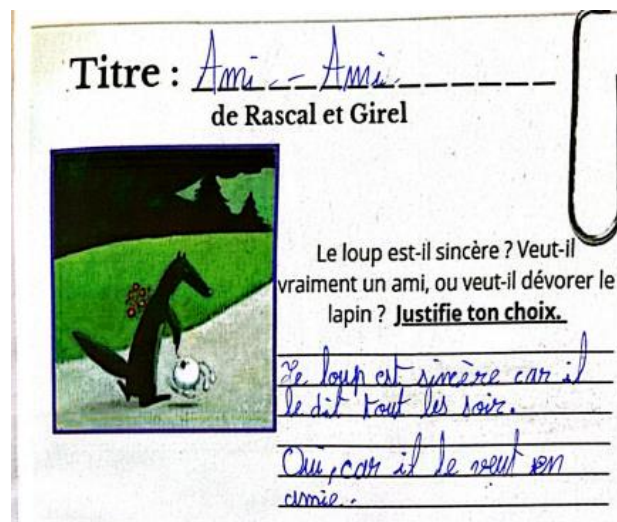 Titre : Ami - Ami
de Rascal et Girel
Le loup est-il sincère ? Veut-il
vraiment un ami, ou veut-il dévorer le
lapin ? Justifie ton choix.
Le loup est sincère car il
le dit tout les soir.
Oui, car il le veut en
amie.